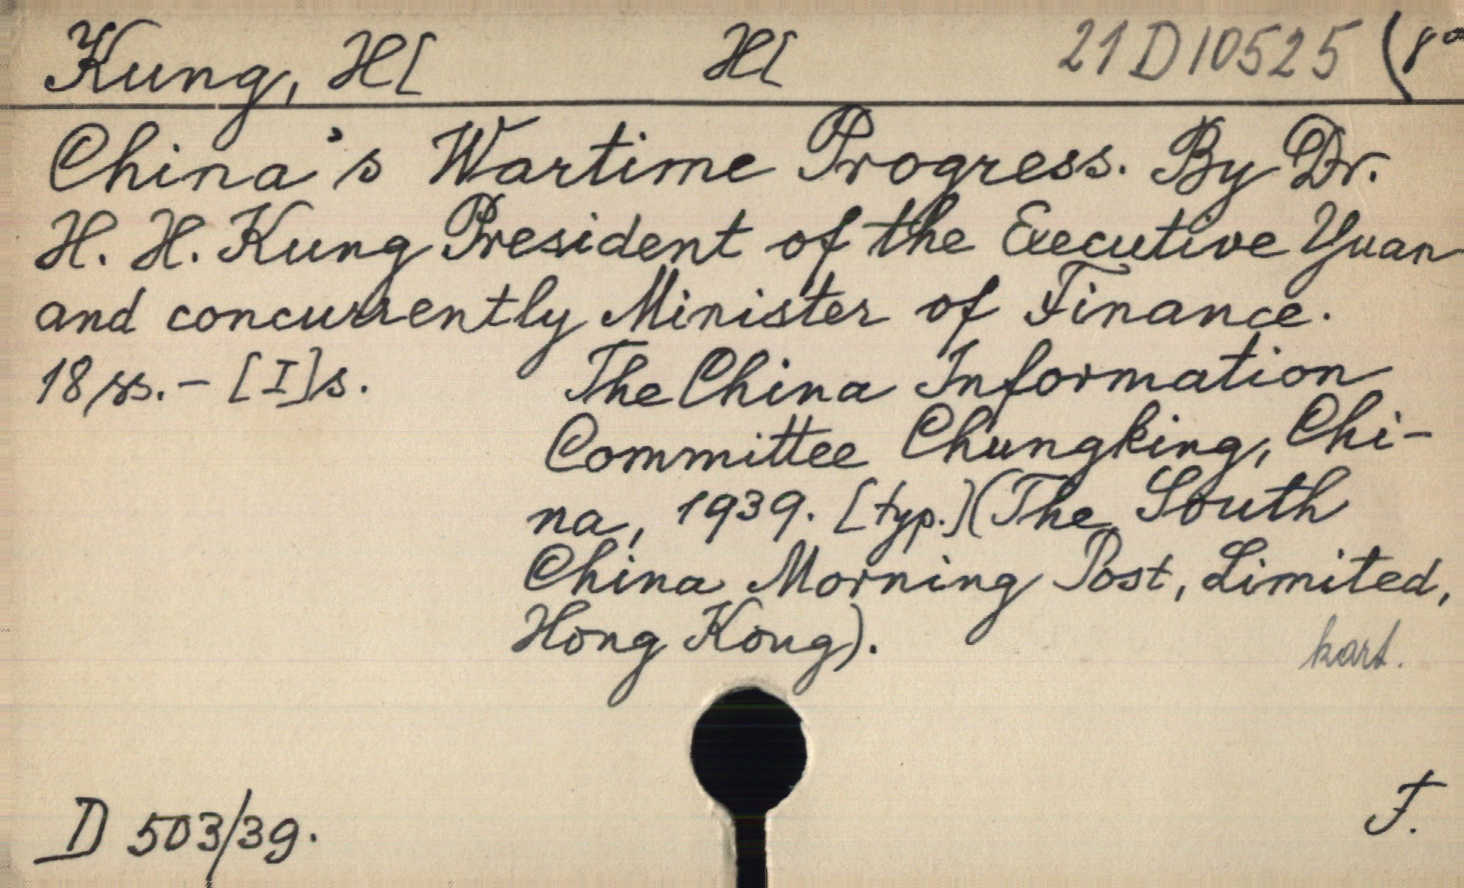 Kung, H[ H[ 21 D 10525 (8°
China's Wartime Progress. By Dr.
H. H. Kung President of the Executive Yuan
and concurrently Minister of Finance.
18 ss. – [I] s. The China Information
Committee Chungking, Chi-
na, 1939. [typ.] (The South
China Morning Post, Limited,
Hong Kong).
kart.
D 503/39. F.